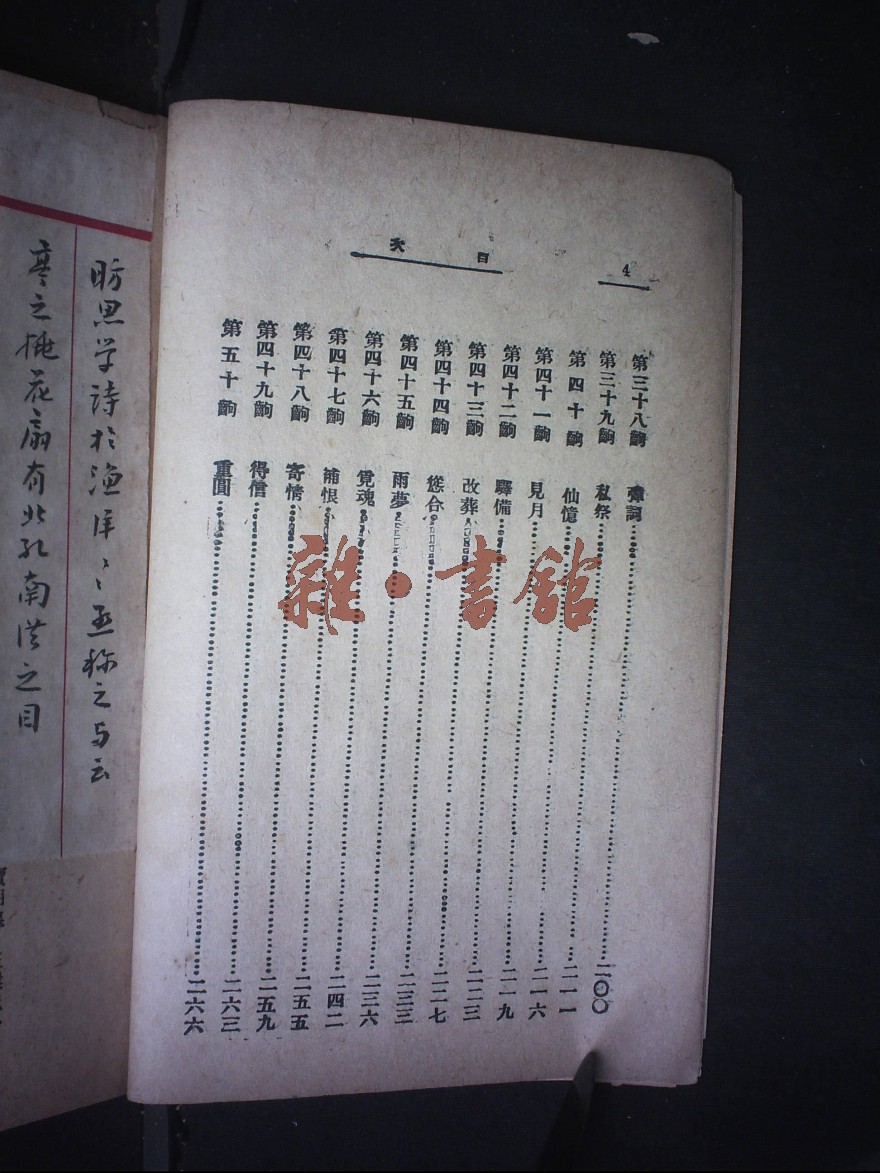 4
目次
第三十八齣 彈詞……二〇〇
第三十九齣 私祭……二一一
第四十齣 仙憶……二一六
第四十一齣 見月……二一九
第四十二齣 驛備……二二三
第四十三齣 改葬……二二七
第四十四齣 慫合……二三三
第四十五齣 雨夢……二三六
第四十六齣 覓魂……二四二
第四十七齣 補恨……二五五
第四十八齣 寄情……二五九
第四十九齣 得信……二六三
第五十齣 重圓……二六六
昉思学詩於渔洋〻亟称之与云
亭之桃花扇有北孔南洪之目
雜·書館